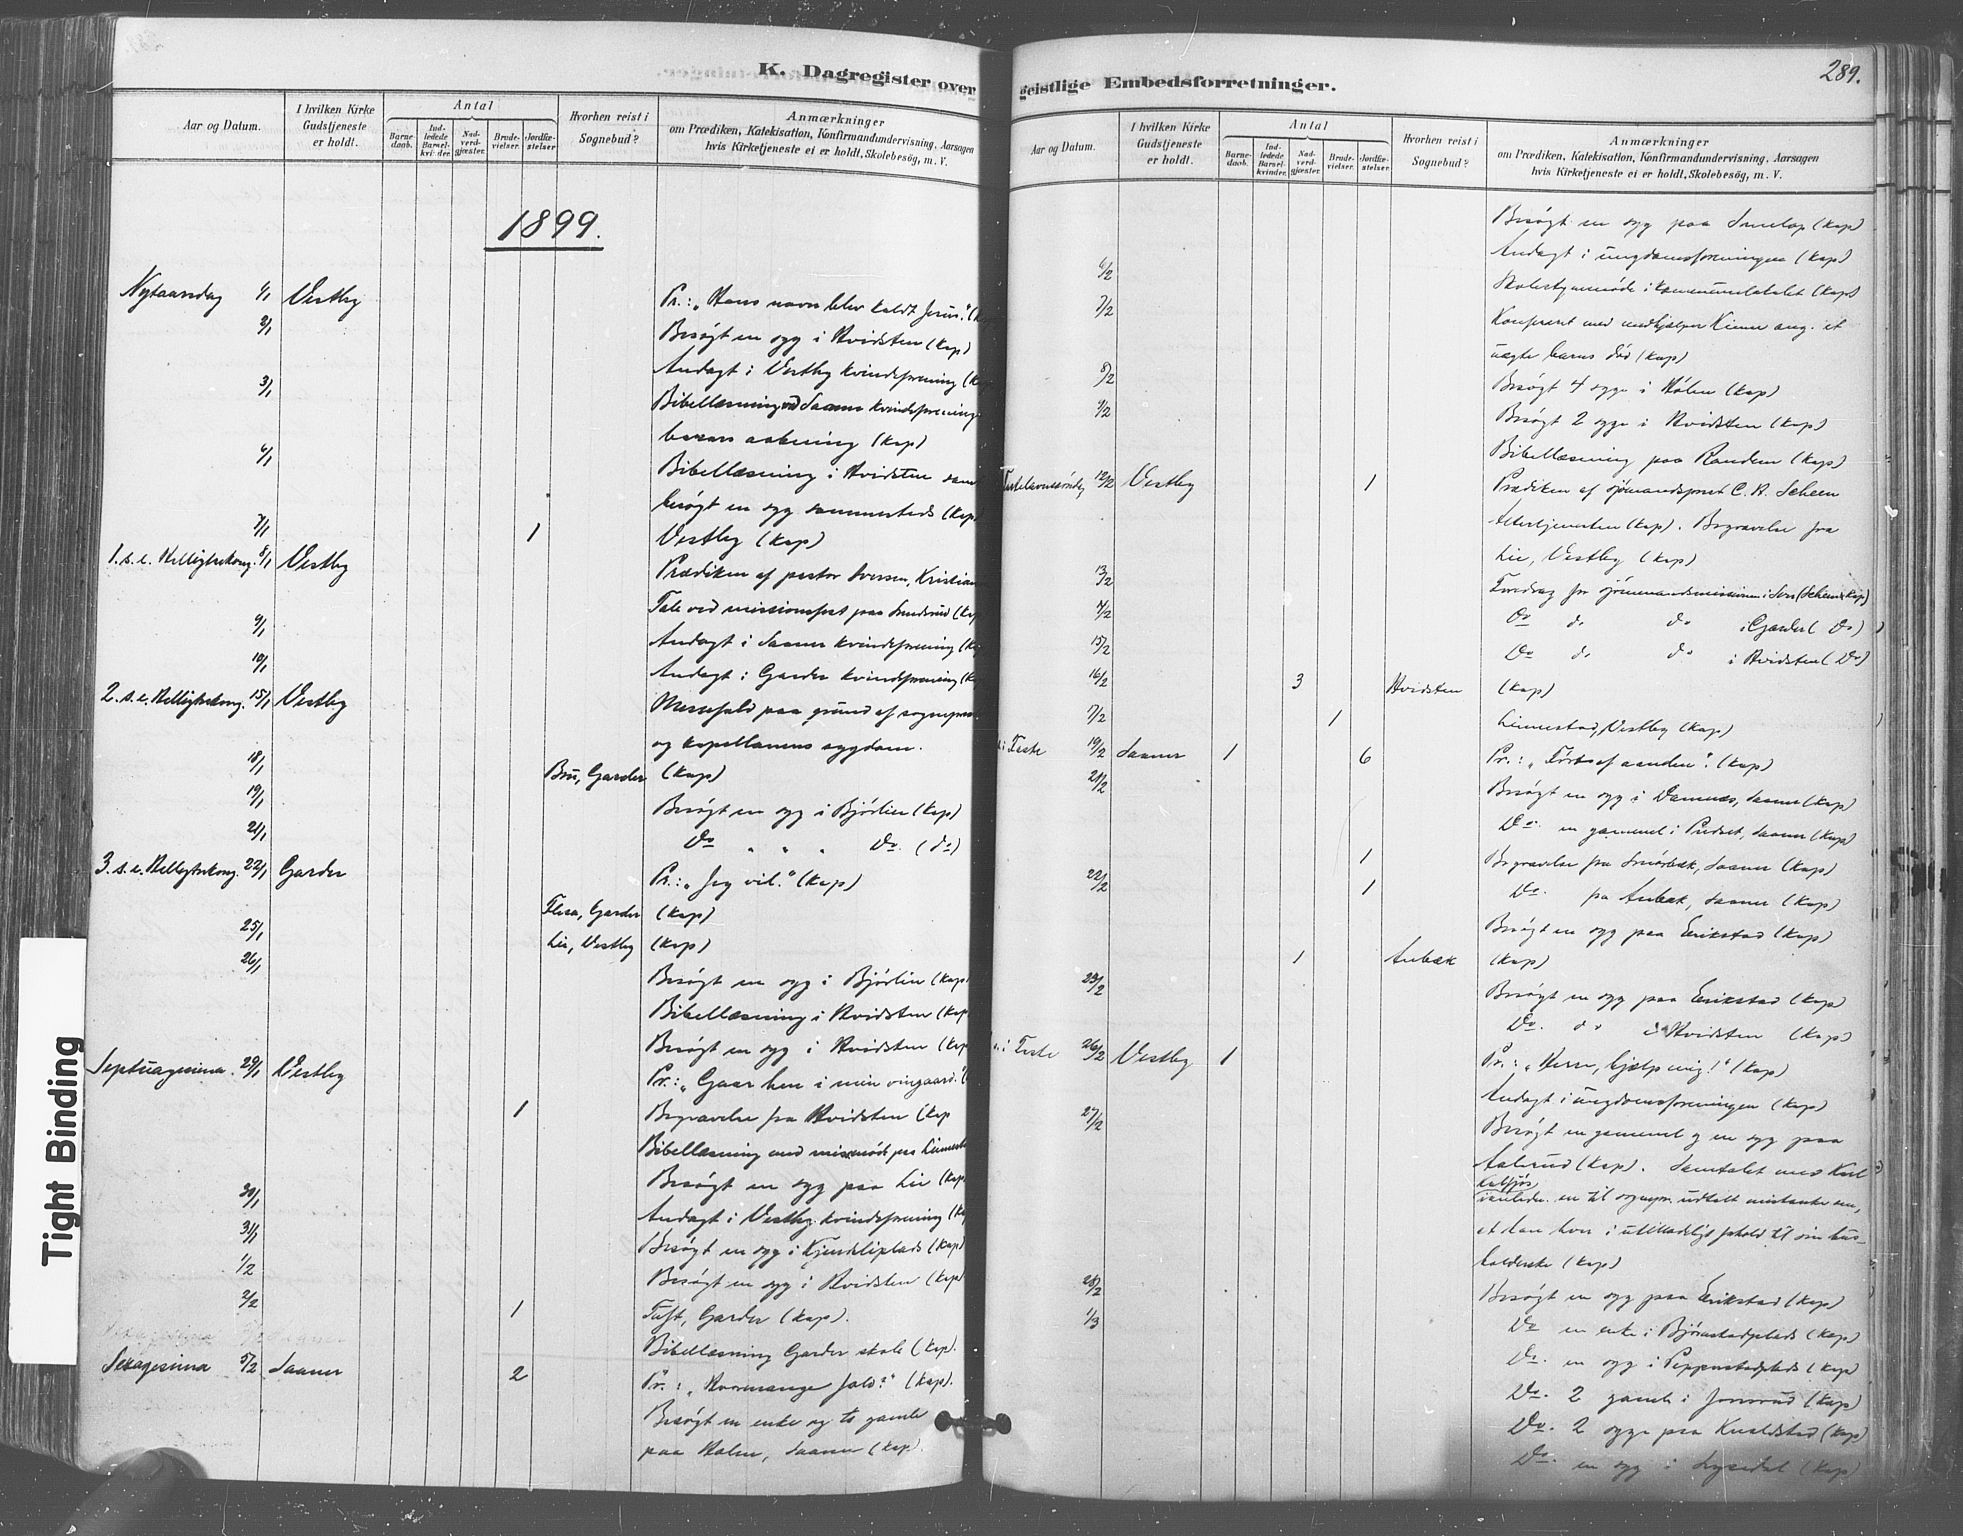 K. Dagregister over geistlige Embedsforretninger.
289.
Aar og Datum.
I hvilken Kirke Gudstjeneste er holdt.
Antal
Barnedaab.
Indledede Barselkvinder.
Nadverdgjæster.
Brudevielser.
Jordfæstelser
Hvorhen reist i Sognebud?
Anmærkninger
om Prædiken, Katekisation, Konfirmandundervisning, Aarsagen
hvis Kirketjeneste ei er holdt, Skolebesøg, m. V.
1899.
Nytaarsdag 1/1 Vestby Pr.: „Hans navn blev kaldt Jesus."
2/1 Besøgt en syg i Hvidsten (Kap)
Andagt i Vestby kvindeforening
3/1 Bibellæsning ved Saaner kvindeforenings
basars aabning (Kap)
6/1 Bibellæsning i Hvidsten samt
besøgt en syg sammesteds (Kap)
7/1 1 Vestby (Kap)
1. s. e. Helligtrekong. 8/1 Vestby Prædiken af pastor Iversen, Kristian
Tale ved missionsfest paa (Kap)
9/1 Andagt i Saaner kvindeforening
10/1 Andagt i Garder kvindeforening
2. s. e. Helligtrekong. 15/1 Vestby Messefald paa grund af sognepres
og kapellanens sygdom.
18/1 Garder (Kap)
19/1 Besøgt en syg i Bjørlien (Kap)
21/1 Do „ „ „ Do. (do)
3. s. e. Helligtrekong. 22/1 Garder Pr.: „Jeg vil." (Kap)
25/1 Garder (Kap)
26/1 Lie, Vestby (Kap)
Besøgt en syg i Bjørlien (Kap)
Bibellæsning i Hvidsten (Kap
Besøgt en syg i Hvidsten (Kap
Septuagesima. 29/1 Vestby Pr.: „Gaar hen i min vingaard."
1 Begravelse fra Hvidsten (Kap
Bibellæsning med paa
Besøgt en syg paa Lie (Kap.
30/1 Andagt i Vestby kvindeforening
31/1 Besøgt en syg i (Kap)
1/2 Besøgt en syg i Hvidsten (Kap)
2/2 1 Garder (Kap).
Bibellæsning Garder skole (Kap).
Sexagesima 5/2 Saaner 2 Pr.: „Hvormange fold?" (Kap).
Besøgt en enke og to gamle
paa Holen, Saaner (Kap).
Aar og Datum.
I hvilken Kirke Gudstjeneste er holdt.
Antal
Barnedaab.
Indledede Barselkvinder.
Nadverdgjæster.
Brudevielser.
Jordfæstelser.
Hvorhen reist i Sognebud?
Anmærkninger
om Prædiken, Katekisation, Konfirmandundervisning, Aarsagen
hvis Kirketjeneste ei er holdt, Skolebesøg, m. V.
Besøgt en syg paa (Kap)
6/2 Andagt i ungdomsforeningen (Kap)
Skolestyremøde i kommunelokalet (Kap)
7/2 Konfereret med medhjælper ang. et
uægte barns død (Kap)
8/2 Besøgt 4 syge i Hølen (Kap)
9/2 Besøgt 2 syge i Hvidsten (Kap)
Bibellæsning paa Randem (Kap)
Fastelavnssøndag 12/2 Vestby 1 Prædiken af sjømandsprest C. A. Scheen
Altertjenesten (Kap). Begravelse fra
Lie, Vestby (Kap)
13/2 Foredrag for sjømandsmissionen i Son (Scheen & Kap)
14/2 Do do do i Garder (Do)
15/2 Do do do i Hvidsten (Do)
16/2 3 Hvidsten (Kap)
17/2 1 Vestby (Kap)
i Faste 19/2 Saaner 1 6 Pr.: „Ført af aanden". (Kap)
21/2 Besøgt en syg i Saaner (Kap)
Do. en gammel i Saaner (Kap)
1 Begravelse fra Smørbæk, Saaner (Kap)
22/2 1 Do. fra Aubæk, Saaner (Kap)
Besøgt en syg paa Erikstad (Kap)
1 Aubæk (Kap)
23/2 Besøgt en syg paa Erikstad (Kap)
Do. do i Hvidsten (Kap)
i Faste 26/2 Vestby 1 Pr.: „Herre, hjælp mig!" (Kap)
Andagt i ungdomsforeningen (Kap)
27/2 Besøgt en gammel og en syg paa
(Kap). Samtalet med Karl
en til sognepr. udtalt mistanke om,
at han lever i utilladeligt forhold til sin hus-
holderske (Kap)
28/2 Besøgt en syg paa Erikstad (Kap)
1/3 Do en enke i Bjørnstadplads (Kap)
Do. en syg i Peppenstadplads (Kap)
Do. 2 gamle i (Kap)
Do. 2 syge paa (Kap)
Do. en syg i (Kap)
Tight Binding